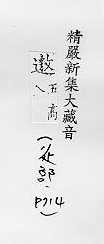 精嚴新集大藏音
遨
五高
(辵部.P714)